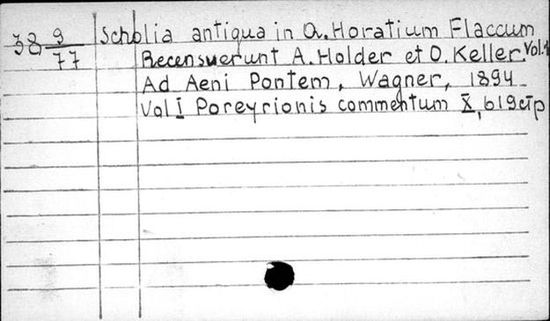 38 9/77 Scholia antiqua in Q. Horatium Flaccum
Recensuerunt A. Holder et O. Keller. Vol. 1
Ad Aeni Pontem, Wagner, 1894
Vol I Poreyrionis commentum X, 619 стр